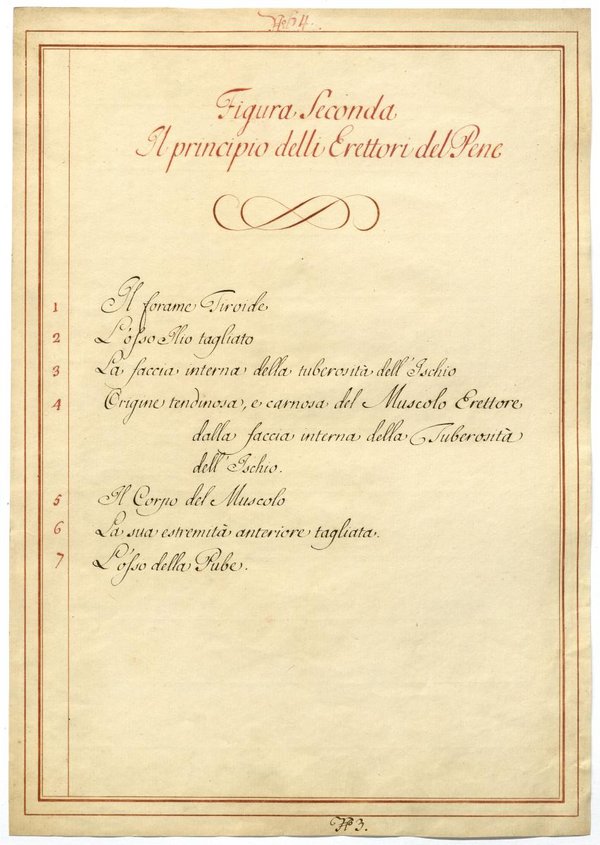 N.º 64.
Figura Seconda
Il principio delli Erettori del Pene
1 Il forame Tiroide
2 L'osso Ilio tagliato
3 La faccia interna della tuberosità dell'Ischio
4 Origine tendinosa, e carnosa del Muscolo Erettore
dalla faccia interna della Tuberosità
dell'Ischio.
5 Il Corpo del Muscolo
6 La sua estremità anteriore tagliata.
7 L'osso della Pube.
3.